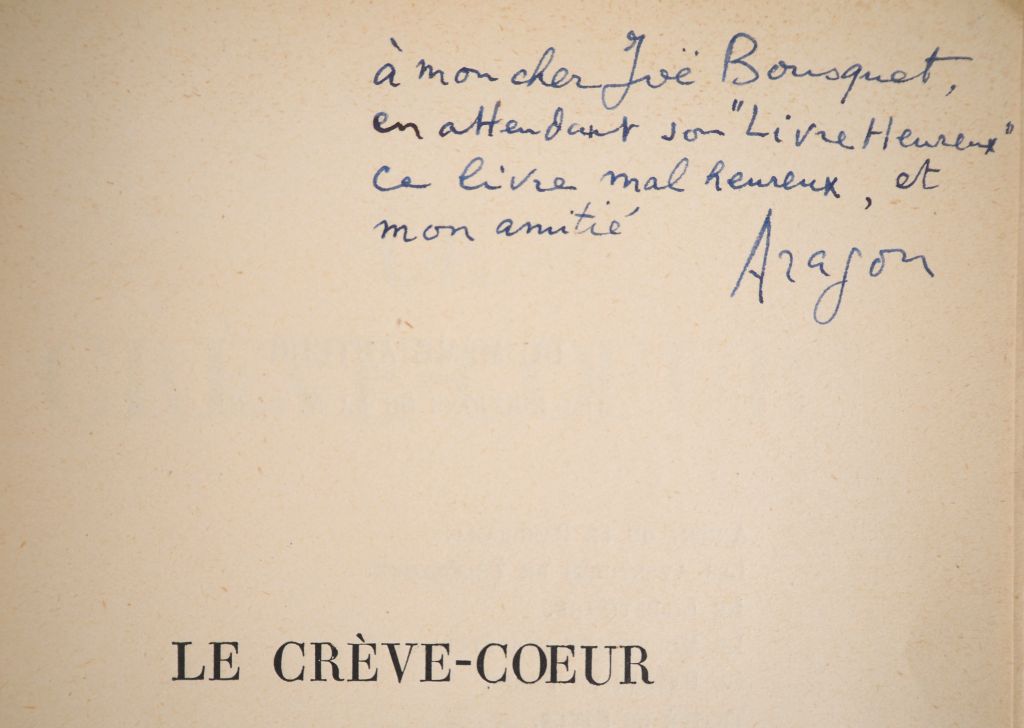 à mon cher Joë Bousquet,
en attendant son "Livre Heureux"
ce livre malheureux, et
mon amitié
Aragon
LE CRÈVE-COEUR